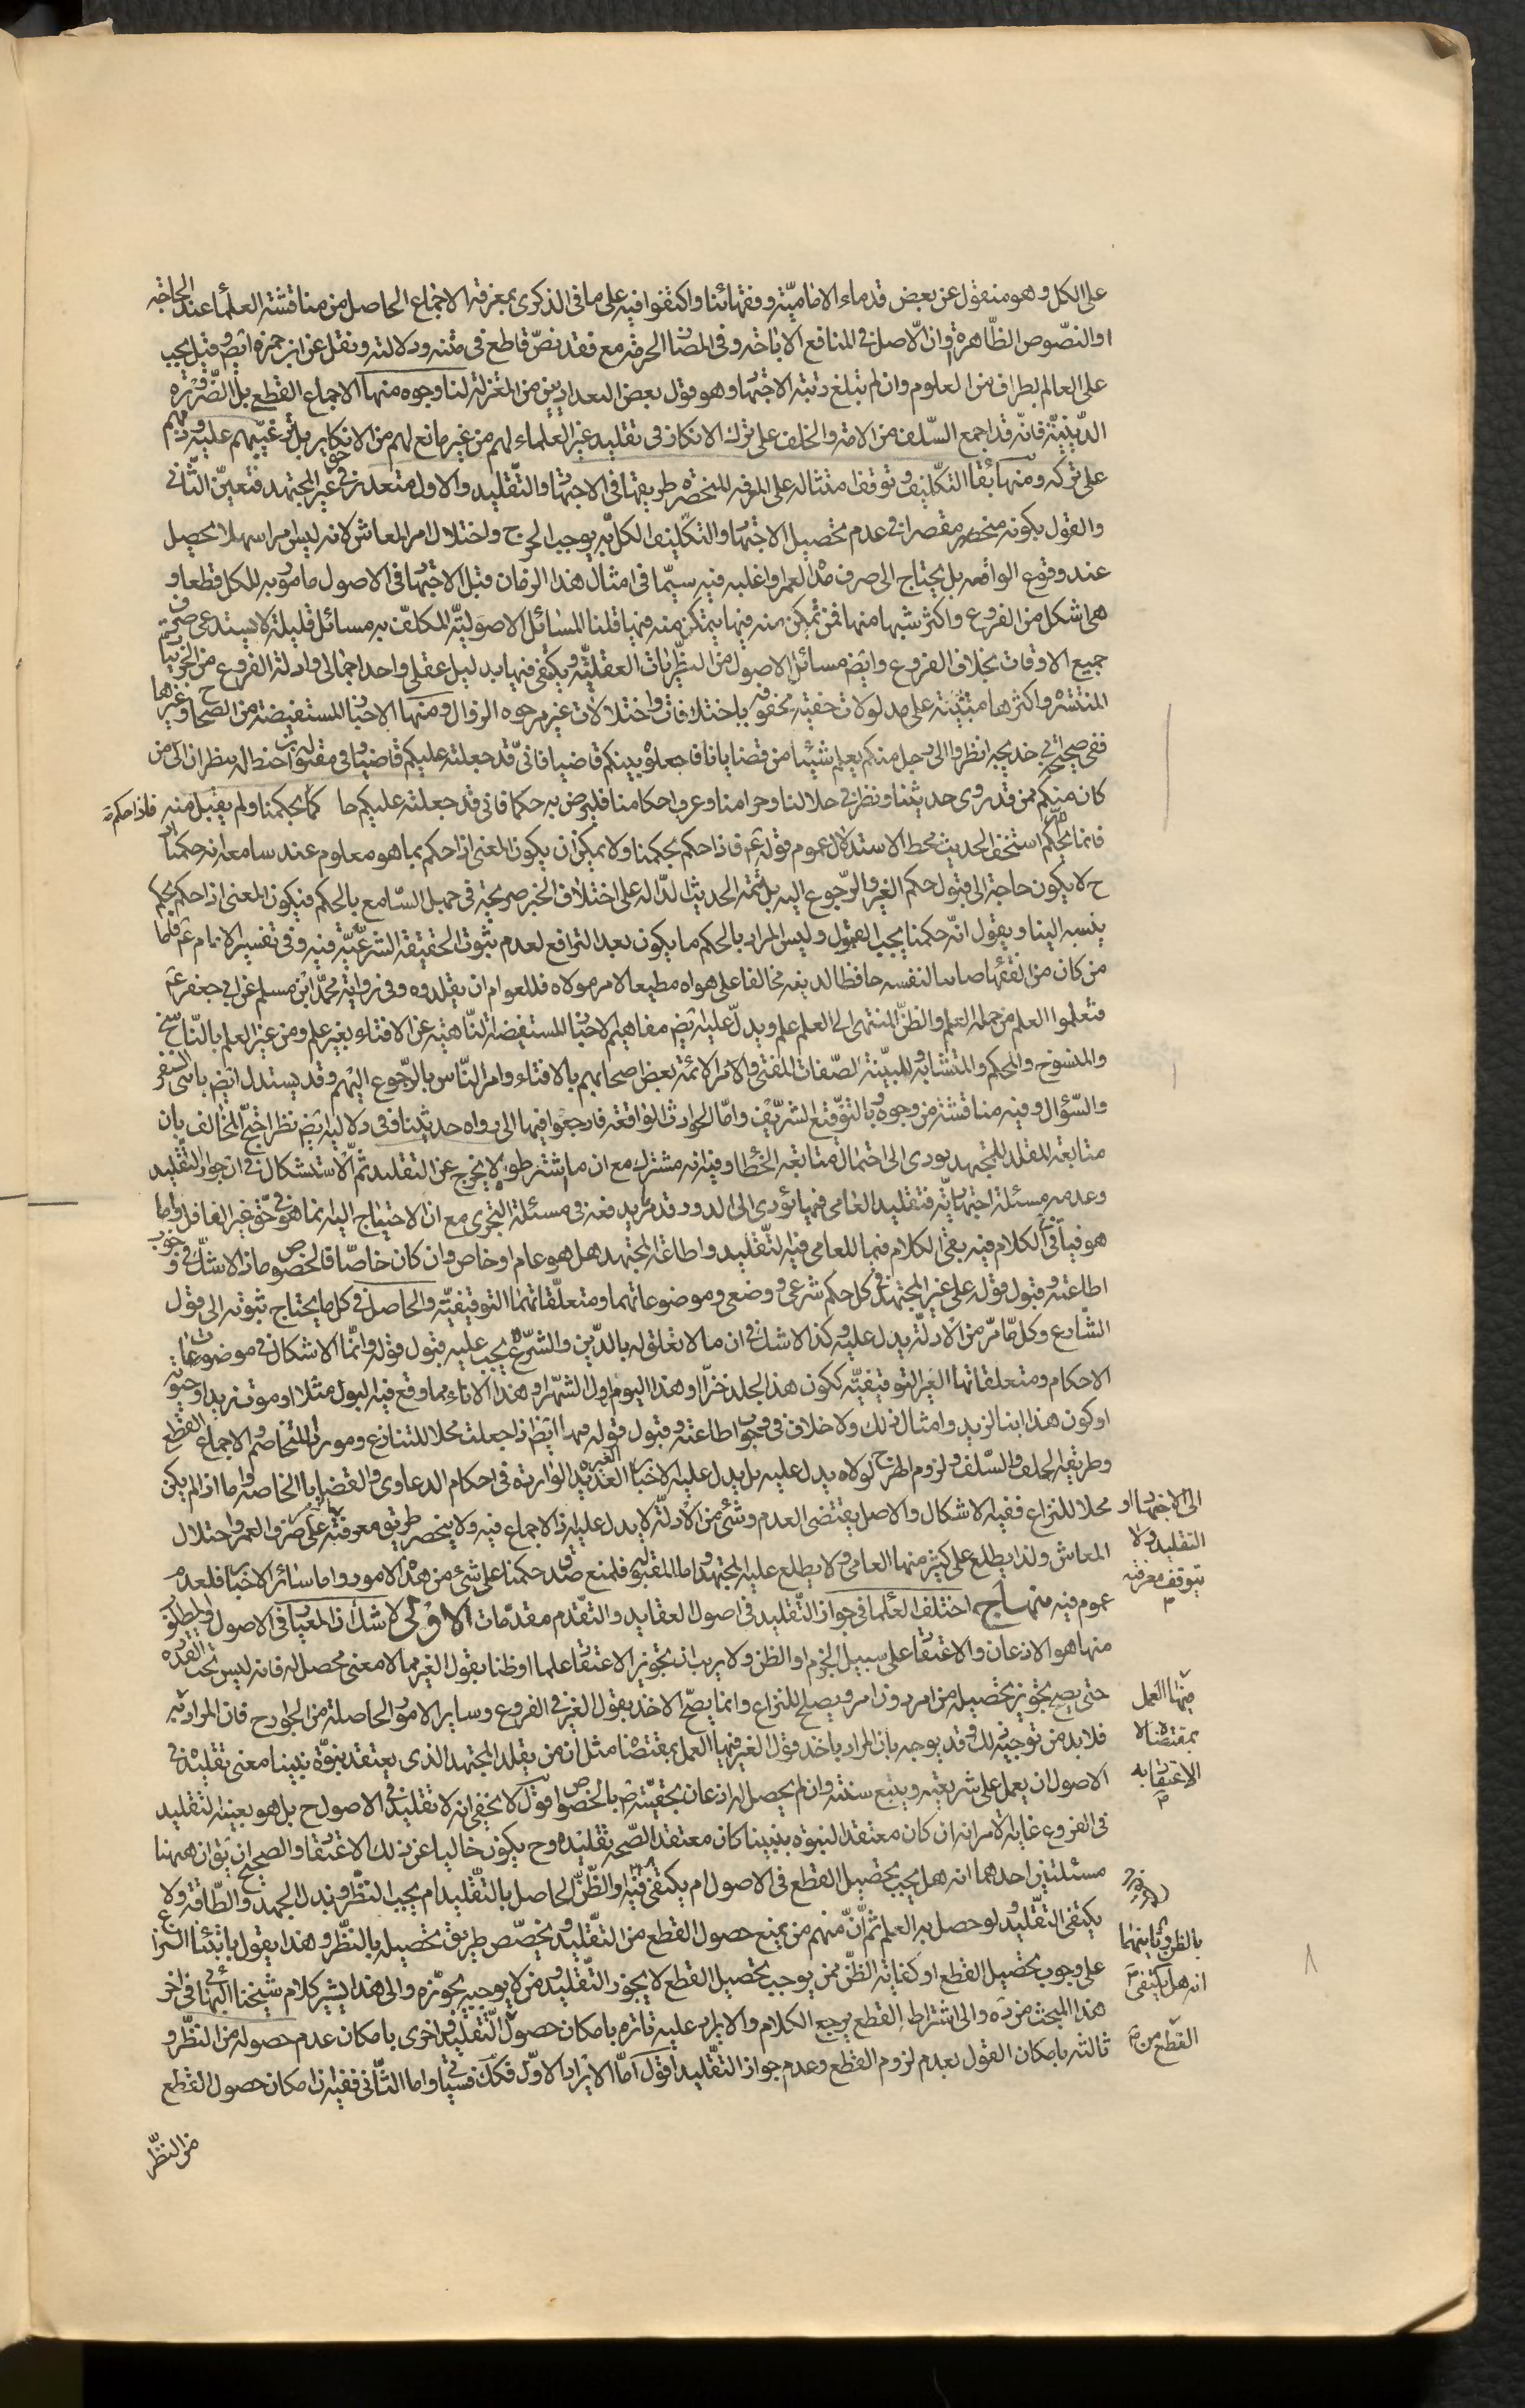 على الكل وهو منقول عن بعض قدماء الاماميّة وفقهائنا واكتفوا فيه على ما فى الذكرى بمعرفة الاجماع الحاصل من مناقشة العلماء عند الحاجة
او النصّوص الظّاهرة وانّ الاصل فى المنافع الاباحة وفى المضا الحرمة مع فقد نصّ قاطع فى متنه ودلالته ونقل عن ابن حمزة ايضا وقيل يجب
على العالم بطراف من العلوم وان لم تبلغ رتبة الاجتها وهو قول بعض البعداديين من المعتزلة لنا وجوه منها الاجماع القطعى بل الضّرورة
الدّينيّة فانّه قد اجمع السّلف من الامة والخلف على ترك الانكار فى تقليد غير العلماء لهم من غير مانع لهم من الانكار بل ترغيبهم عليه وذمّهم
على تركه ومنها بقا التكليف وتوقف امتثاله على المعرفة المنحصرة طريقها فى الاجتها والتقليد والاول متعذر فى حق غير المجتهد فتعيّن الثّانى
والقول بكونه منحصر مقصرا فى عدم تحصيل الاجتها والتكليف الكل به يوجب الحرج واختلال امر المعاش لانه ليس امرا سهلا يحصل
عند وقوع الواقعة بل يحتاج الى صرف مدة العمر او اغلبه فيه سيّما فى امثال هذا الزمان قيل الاجتها فى الاصول مامور به للكل قطعا و
هى اشكل من الفروع واكثر شبها منها فمن تمكن منه فيها يتمكن منه فيها قلنا المسائل الاصوليّة المكلف به مسائل قليلة لا يستدعى صرف
جميع الاوقات بخلاف الفروع وايضا مسائل الاصول من النظريات العقليّة ويكتفى فيها بدليل عقلى واحد اجمالى وادلة الفروع من الجزئيا
المنتشره واكثرها مبتنية على مدلولات خفية محفوفة باختلافات واختلالات غير مرجوه الزوال ومنها الاخبا المستفيضة من الصحاح وغيرها
ففى صحيحة ابى خديجه انظروا الى رجل منكم يعلم شيئا من قضايانا فاجعلوه بينكم قاضيا فانّى قد جعلته عليكم قاضيا وفى مقبولة ابن حنظله ينظران الى من
كان منكم ممن قد روى حديثنا ونظر فى حلالنا وحرامنا وعرف احكامنا فليرض به حكما فانى قد جعلته عليكم حاكما فاذا حكم بحكمنا ولم يقبل منه
فانما بحكم الله استخف الحديث محط الاستدلال عموم قوله ع فاذا حكم بحكمنا ولا يمكن ان يكون المعنى اذا حكم بما هو معلوم عند سامعه انه حكمنا
ح لا يكون حاجة الى قبول حكم الغير والرّجوع اليه بل تتمة الحديث الدّالة على اختلاف الخبر صريحة فى جهل السّامع بالحكم فيكون المعنى اذا حكم بحكم
ينسبه الينا ويقول انّه حكمنا يجب القبول وليس المراد بالحكم ما يكون بعد الترافع لعدم ثبوت الحقيقة الشرعيّة فيه وفى تفسير الامام ع فاما
من كان من الفقها صائنا لنفسه حافظا لدينه مخالفا على هواه مطيعا لامر مولاه فللعوام ان يقلدوه وفى رواية محمّد ابن مسلم عن ابى جعفر ع
فتعلموا العلم من حمله العلم والظنّ المنتهى الى العلم علم ويدلّ عليه ايض مفاهيم الاخبا المستفيضة النّاهية عن الافتاء بغير علم ومن غير العلم بالنّاسخ
والمنسوخ والمحكم والمتشابه والمبيّنة الصّفات المفتى والامر الائمة بعض اصحابهم بالافتاء وامر النّاس بالرّجوع اليهم وقد يستدل ايض باى النفر
والسّؤال وفيه مناقشة من وجوه وبالتوقيع الشريف وامّا الحوادث الواقعة فارجعوا فيها الى رواه حديثنا وفى دلالته ايض نظر احتج المخالف بان
متابعة المقلد للمجتهد يودى الى احتمال متابعة الخطا وفيه انه مشترك مع ان ما اشترطوه لا يخرج عن التقليد ثم الاستشكال فى ان جواز التقليد
وعدمه مسئلة اجتهاديّة فتقليد العامى فيها يؤدى الى الدور وقد مرّ يدفعه فى مسئلة التجزى مع ان الاحتياج اليه انما هو فى حق غير الغافل واما
هو فيأتى الكلام فيه بقى الكلام فيما للعامى فيه التّقليد واطاعة المجتهد هل هو عام او خاص وان كان خاصّا فالخصوص ماذا لا شكّ فى وجوب
اطاعته وقبول قوله على غير المجتهد فى كل حكم شرعى ووضعى وموضوعاتهما ومتعلّقاتهما التوقيفيّة والحاصل فى كل ما يحتاج ثبوته الى قول
الشارع وكل ما مرّ من الادلّة يدل عليه وكذا لا شك فى ان ما لا تعلق له بالدّين والشّرع لا يجب عليه قبول قوله وانّما الاشكال فى موضوعات
الاحكام ومتعلقاتها الغير التوقيفيّة ككون هذا الجلد خزّا وهذا اليوم اول الشّهر او هذا الاناء مما وقع فيه البول مثلا او موت زيد او حيوته
او كون هذا ابنا لزيد وامثال ذلك ولا خلاف فى وجوب اطاعته وقبول قوله فيها ايضا اذا جعلت محلا للتنازع ومورد التخاصم والاجماع القطعى
وطريقة الخلف والسّلف ولزوم الحرج لولاه يدل عليه بل يدل عليه الاخبا العديدة الغير الواردة فى احكام الدعاوى والقضايا الخاصة واما اذا لم يكن
محلا للنزاع ففيه الاشكال والاصل يقتضى العدم وشئ من الادلّة لا يدل عليه اذ لا اجماع فيه ولا ينحصر طريق معرفته الى الاجتها او التقليد ولا يتوقف معرفته على صرف العمر واختلال
المعاش ولذا يطلع على كثير منها العامى ولا يطلع عليه المجتهد واما المقبولة فلمنع صدق حكمنا على شئ من هذه الامور واما سائر الاخبا فلعدم
عموم فيه منهاج اختلف العلما فى جواز التّقليد فى اصول العقايد والتقدم مقدّمات الاولى لا شك ان المعنيا فى الاصول والمطلوب
منها هو الاذعان والاعتقا على سبيل الجزم او الظن ولا ريب ان تجويز الاعتقا علما او ظنا بقول الغير مما لا معنى محصل له فانه ليس تحت القدرة
حتى يصح تجويز تحصيله من امر دون امر ويصلح للنزاع وانما يصحّ الاخذ بقول الغير فى الفروع وساير الامور الحاصلة من الجوارح فان المراد به
فلابد من توجيه لذلك وقد يوجه بان المراد باخذ قول الغير فيها العمل بمقتضاه مثل ان من يقلد المجتهد الذى يعتقد بنبوّة نبينا معنى تقليده فى
الاصول ان يعمل على شريعته ويتبع سنته وان لم يحصل له اذعان بحقيّته بالخصوص اقول لا يخفى انه لا تقليد فى الاصول ح بل هو بعينه التقليد
فى الفروع غاية الامر انه ان كان معتقد النبوة نبينا كان معتقد الصّحة تقليده وح يكون خاليا عن ذلك الاعتقا والصحيح ان يق ان ههنا
مسئلتين احدهما انه هل يجب تحصيل القطع فى الاصول ام يكتفى فيه الظّنّ الحاصل بالتّقليد ام يجب النظّر وبذل الجهد والطّاقة ولا
يكتفى التّقليد ولو حصل به العلم ثم انّ منهم من يمنع حصول القطع من التّقليد ويخصّص طريق تحصيله بالنّظر وهذا يقول بابتناء النزاع
على وجوب تحصيل القطع او كفاية الظنّ فمن يوجب تحصيل القطع لا يجوز التّقليد ومن لا يوجبه يجوّزه والى هذا يشير كلام شيخنا البهائى فى اخر
هذا المبحث من ده والى اشتراط القطع يرجع الكلام والايراد عليه تارة بامكان حصول التّقليد واخرى بامكان عدم حصوله من النظّر و
ثالثة بامكان القول بعدم لزوم القطع وعدم جواز التقليد اقول امّا الايراد الاوّل فكك فسيأتى واما الثّانى ففيه ان امكان حصول القطع
فاذا حكم
الى الاجتها او
التقليد ولا
يتوقف معرفته
فيها العمل
بمقتضاه لا
الاعتقا به
بالظن وثانيتهما
انه هل يكتفى
القطع من
من النظّر